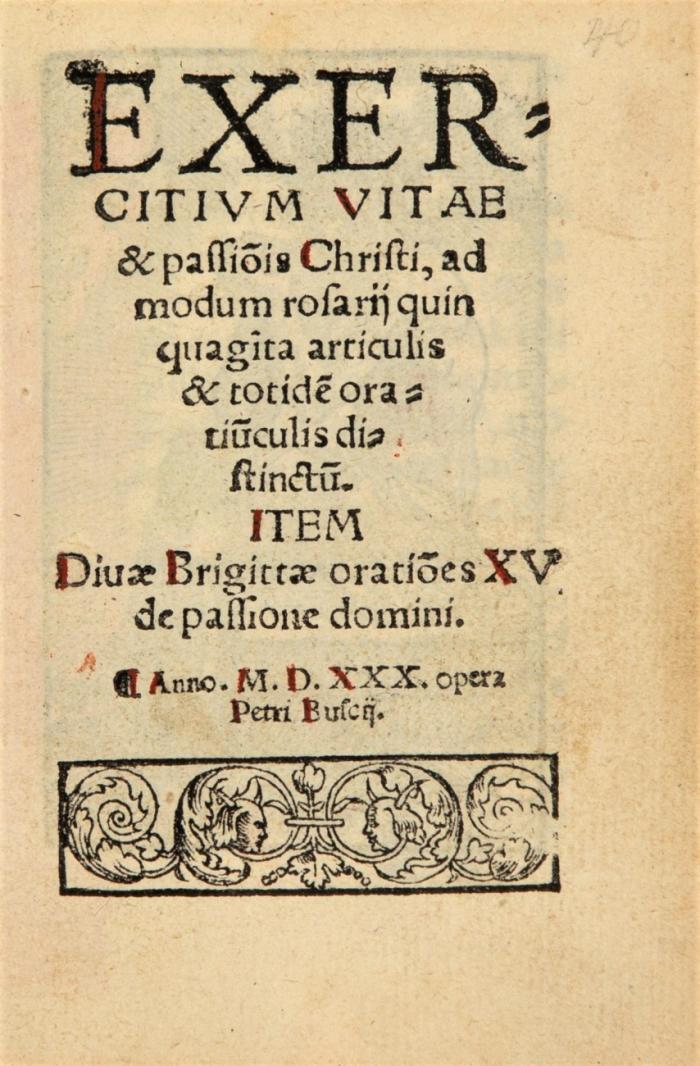 40
EXER⸗
CITIVM VITAE
& paſſiōis Chriſti, ad
modum roſarij quin
quagīta articulis
& totidē ora⸗
tiūculis di⸗
ſtinctū.
ITEM
Diuæ Brigittæ oratiōes XV
de paſſione domini.
¶ Anno. M. D. XXX. opera
Petri Buſcij.